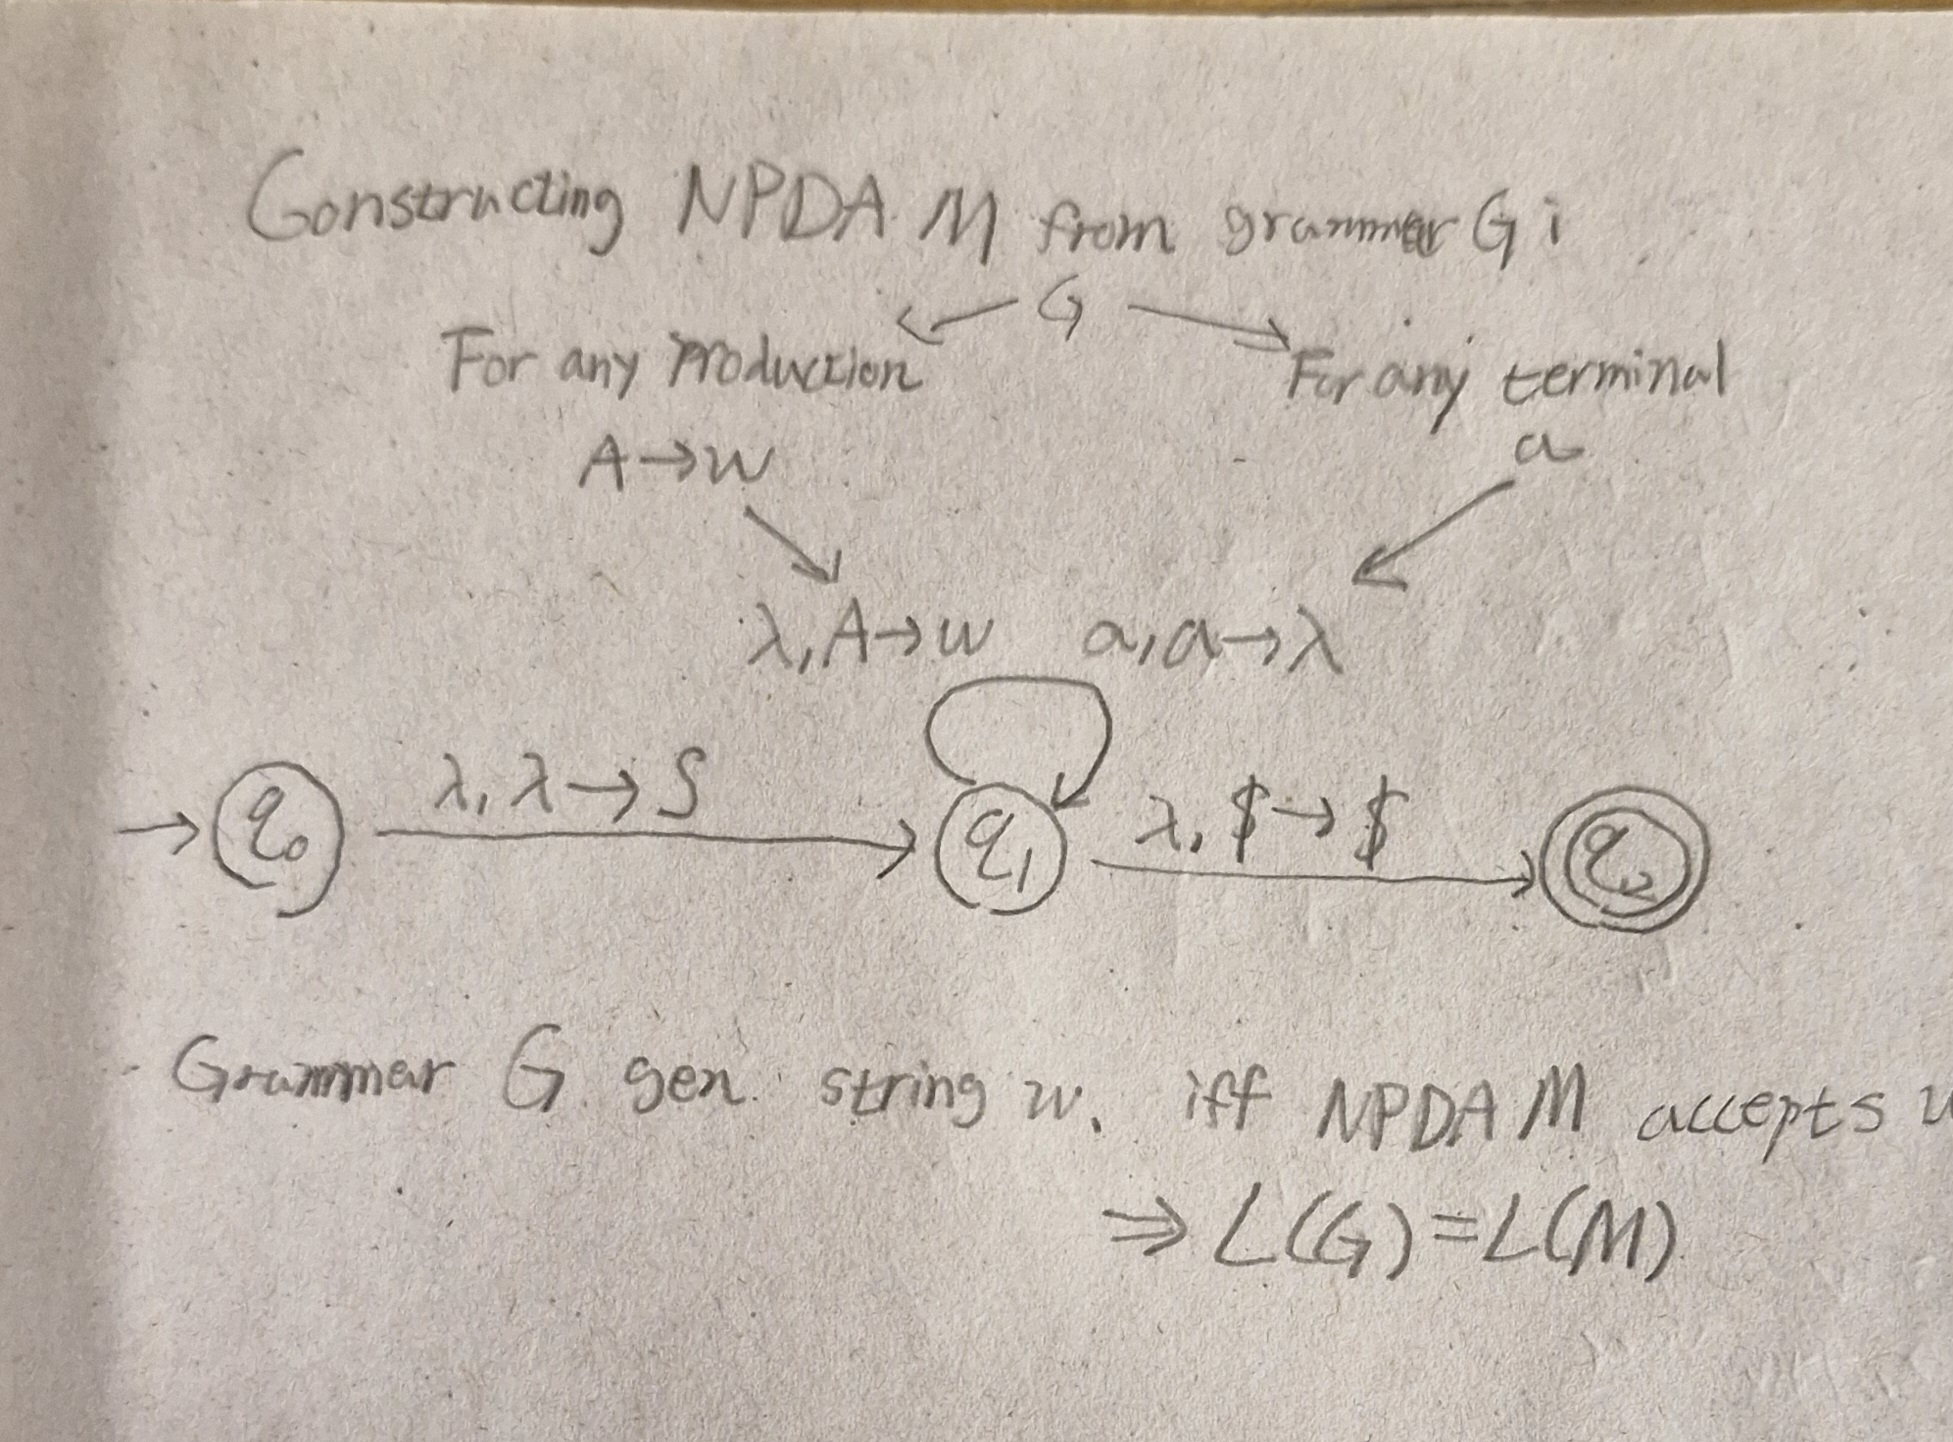 Constructing NPDA M from grammar G:
G
For any production For any terminal
A→w a
λ,A→w a,a→λ
λ,λ→S λ,$→$
q₀ q₁ q₂
Grammar G gen. string w. iff NPDA M accepts
⇒ L(G)=L(M)